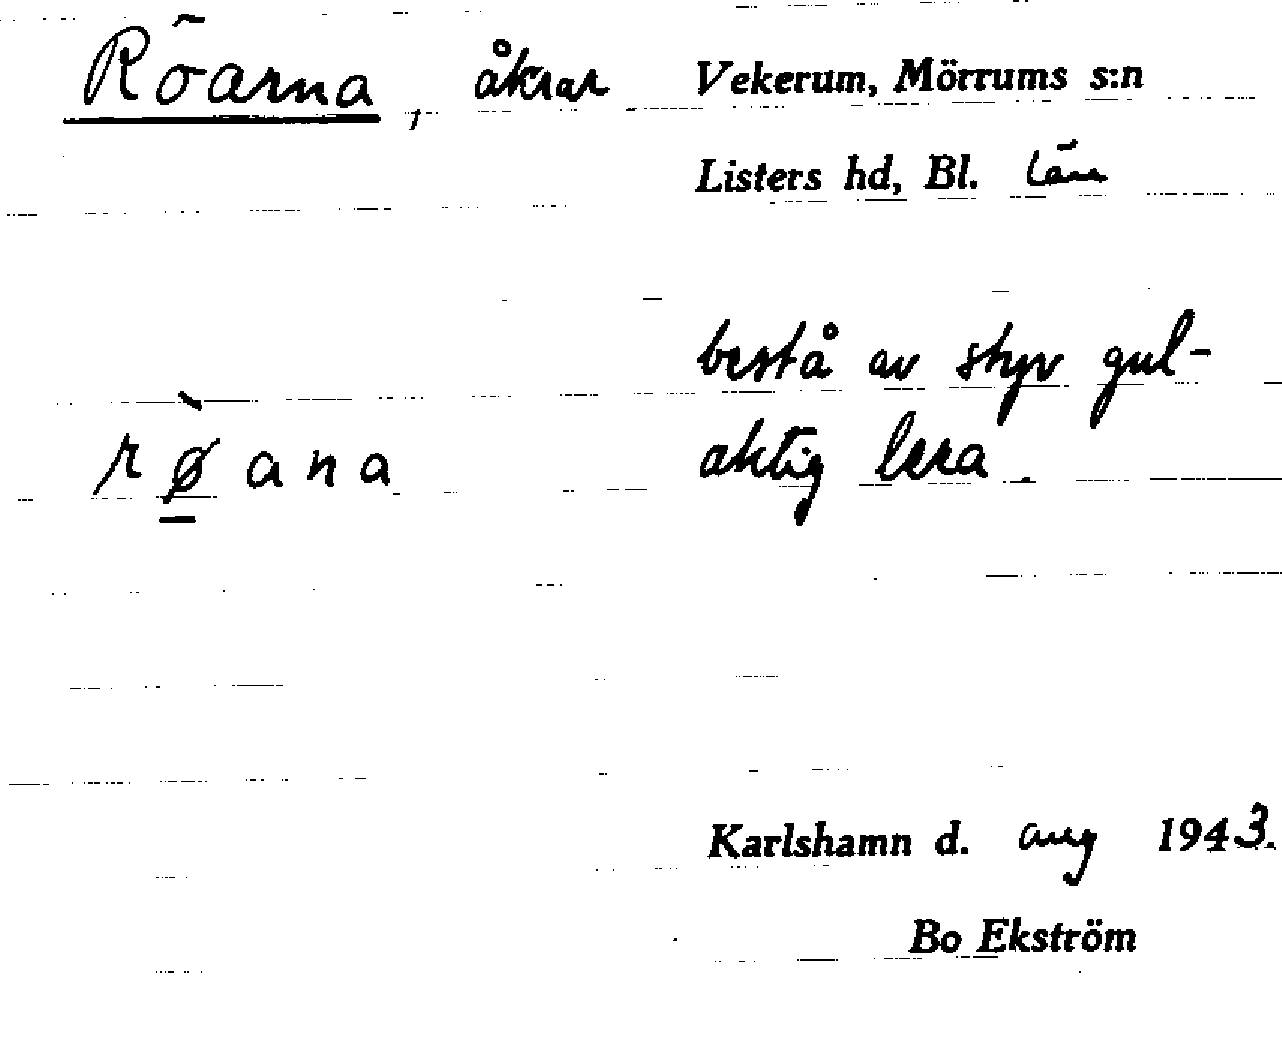 Röarna, åkrar Vekerum, Mörrums s:n
Listers hd, Bl. län
bestå av styv gul-
rø̲̀ana aktig lera.
Karlshamn d. aug 1943.
Bo Ekström